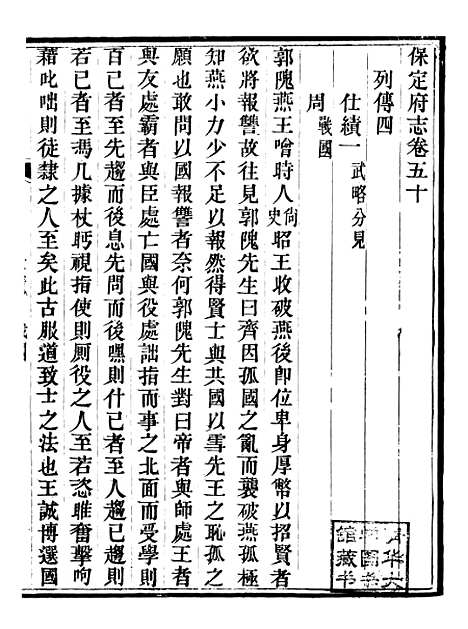 保定府志卷五十
列傳四
仕績一 武略分見
周 戰國
郭隗燕王噲時人 尙史 昭王收破燕後卽位卑身厚幣以招賢者
欲將報讐故往見郭隗先生曰齊因孤國之亂而襲破燕孤極
知燕小力少不足以報然得賢士與共國以雪先王之恥孤之
願也敢問以國報讐者奈何郭隗先生對曰帝者與師處王者
與友處霸者與臣處亡國與役處詘指而事之北面而受學則
百己者至先趨而後息先問而後嘿則什己者至人趨己趨則
若己者至馮几據杖眄視指使則厮役之人至若恣睢奮擊呴
藉叱咄則徒隸之人至矣此古服道致士之法也王誠博選國
华大
图
馆藏书